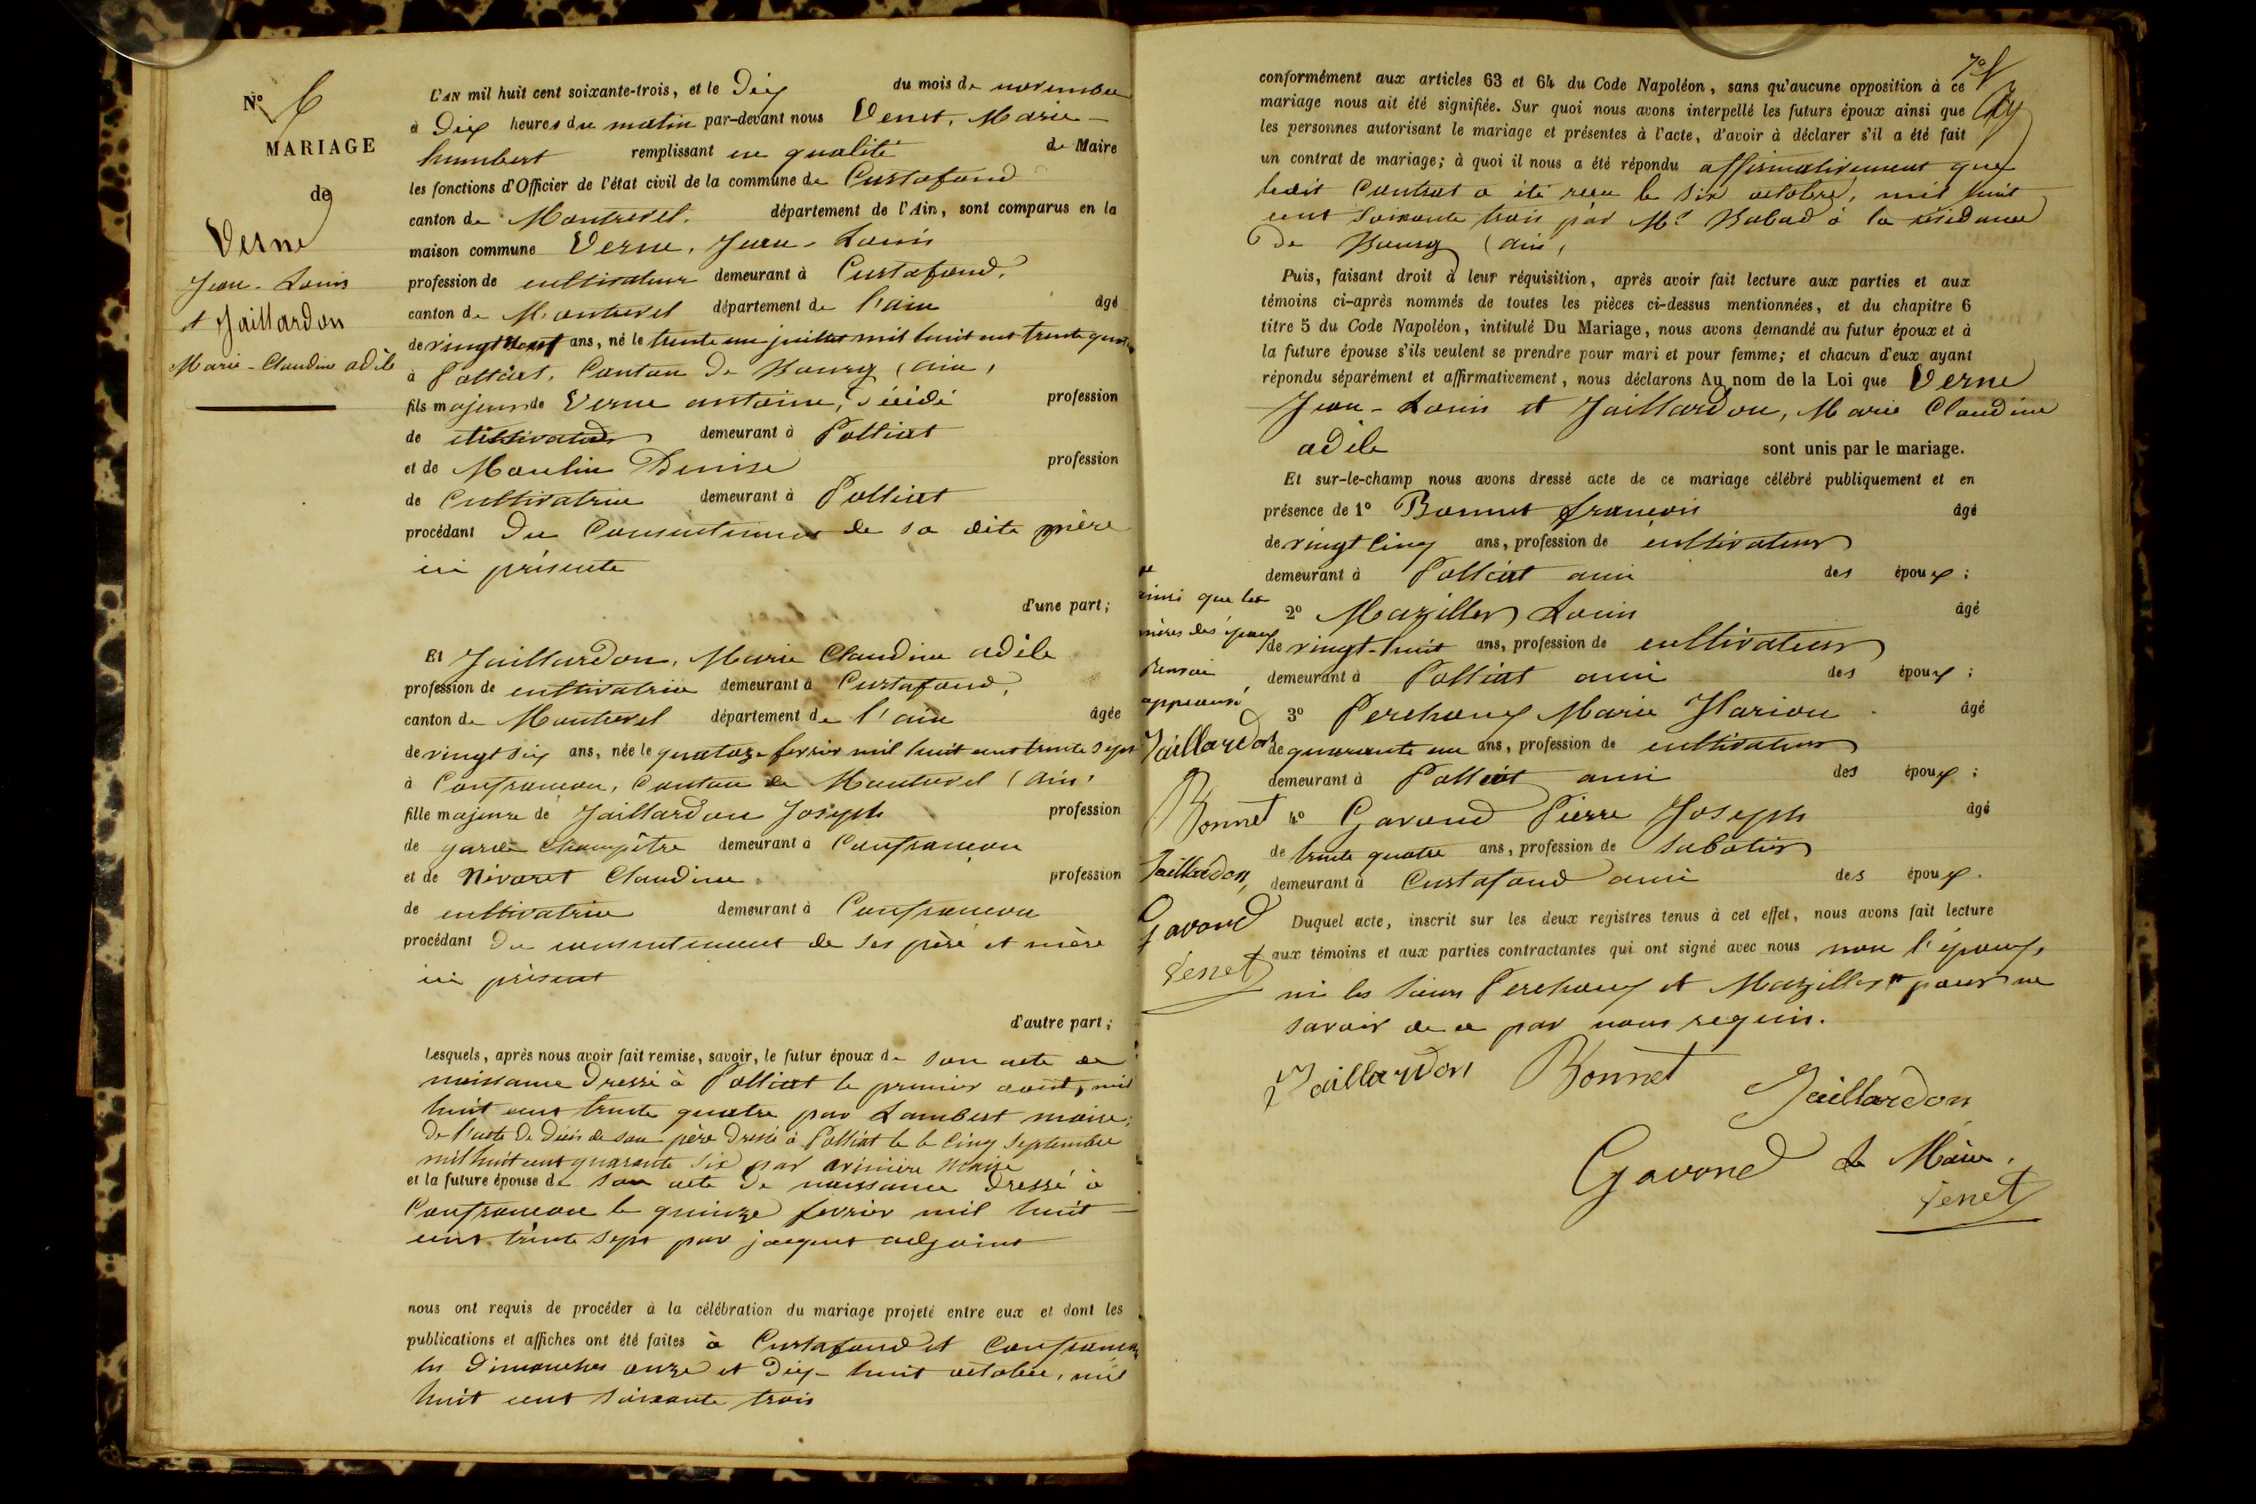 N° 6
MARIAGE
de
Verne
Jean-Louis
et Jaillardon
Marie-Claudine adèle
L'AN mil huit cent soixante-trois, et le Dix du mois de novembre
à Dix heures du matin par-devant nous Venet, Marie-
humbert remplissant en qualité de Maire
les fonctions d'Officier de l'état civil de la commune de Curtafond
canton de Montrevel. département de l'Ain, sont comparus en la
maison commune Verne, Jean-Louis
profession de cultivateur demeurant à Curtafond,
canton de Montrevel département de l'ain âgé
de vingt neuf ans, né le trente un juillet mil huit cent trente quatre
à Polliat, Canton de Bourg (ain,
fils majeur de Verne antoine, décédé profession
de cultivateur demeurant à Polliat
et de Moulin Denise profession
de Cultivatrice demeurant à Polliat
procédant du Consentement de sa dite mère
ici présente
d'une part;
Et Jaillardon, Marie Claudine adèle
profession de cultivatrice demeurant à Curtafond,
canton de Montrevel département de l'ain âgée
de vingt six ans, née le quatorze fevrier mil huit cent trente sept
à Confrançon, Canton de Montrevel (Ain,
fille majeure de Jaillardon Joseph profession
de garde champêtre demeurant à Confrançon
et de Nivaret Claudine profession
de cultivatrice demeurant à Confrançon
procédant du consentement de ses père et mère
ici présent
d'autre part;
Lesquels, après nous avoir fait remise, savoir, le futur époux de son acte de
naissance dressé à Polliat le premier août, mil
huit cent trente quatre par Lambert maire;
De l'acte de décès de son père dressé à Polliat le cinq Septembre
mil huit cent quarante six par maire
et la future épouse de son acte de naissance dressé à
Confrançon le quinze fevrier mil huit
cent trente sept par adjoint
nous ont requis de procéder à la célébration du mariage projeté entre eux et dont les
publications et affiches ont été faites à Curtafond et Confrançon
les Dimanches onze et dix-huit octobre, mil
huit cent soixante trois
conformément aux articles 63 et 64 du Code Napoléon, sans qu'aucune opposition à ce
mariage nous ait été signifiée. Sur quoi nous avons interpellé les futurs époux ainsi que
les personnes autorisant le mariage et présentes à l'acte, d'avoir à déclarer s'il a été fait
un contrat de mariage; à quoi il nous a été répondu affirmativement que
ledit Contrat a été reçu le six octobre, mil huit
cent soixante trois par Me Babad à la résidence
de Bourg (ain,
Puis, faisant droit à leur réquisition, après avoir fait lecture aux parties et aux
témoins ci-après nommés de toutes les pièces ci-dessus mentionnées, et du chapitre 6
titre 5 du Code Napoléon, intitulé Du Mariage, nous avons demandé au futur époux et à
la future épouse s'ils veulent se prendre pour mari et pour femme; et chacun d'eux ayant
répondu séparément et affirmativement, nous déclarons Au nom de la Loi que Verne
Jean-Louis et Jaillardon, Marie Claudine
adèle sont unis par le mariage.
Et sur-le-champ nous avons dressé acte de ce mariage célébré publiquement et en
présence de 1° Bonnet françois âgé
de vingt cinq ans, profession de cultivateur
demeurant à Polliat ami des époux;
2° Mazillier Louis âgé
de vingt-huit ans, profession de cultivateur
demeurant à Polliat ami des époux;
3° Perchoux Marie Harion âgé
de quarante un ans, profession de cultivateur
demeurant à Polliat ami des époux;
4° Gavond Pierre Joseph âgé
de trente quatre ans, profession de sabotier
demeurant à Curtafond ami des époux.
Duquel acte, inscrit sur les deux registres tenus à cet effet, nous avons fait lecture
aux témoins et aux parties contractantes qui ont signé avec nous non l'époux,
ni les sieurs Perchoux et Mazillier pour ne
savoir de ce par nous requis.
ainsi que les
mères des époux
Renvoi
approuvé
Jaillardon
Bonnet
Jaillardon
Gavond
Venet
Jaillardon Bonnet
Jaillardon
Gavond Le Maire,
Venet